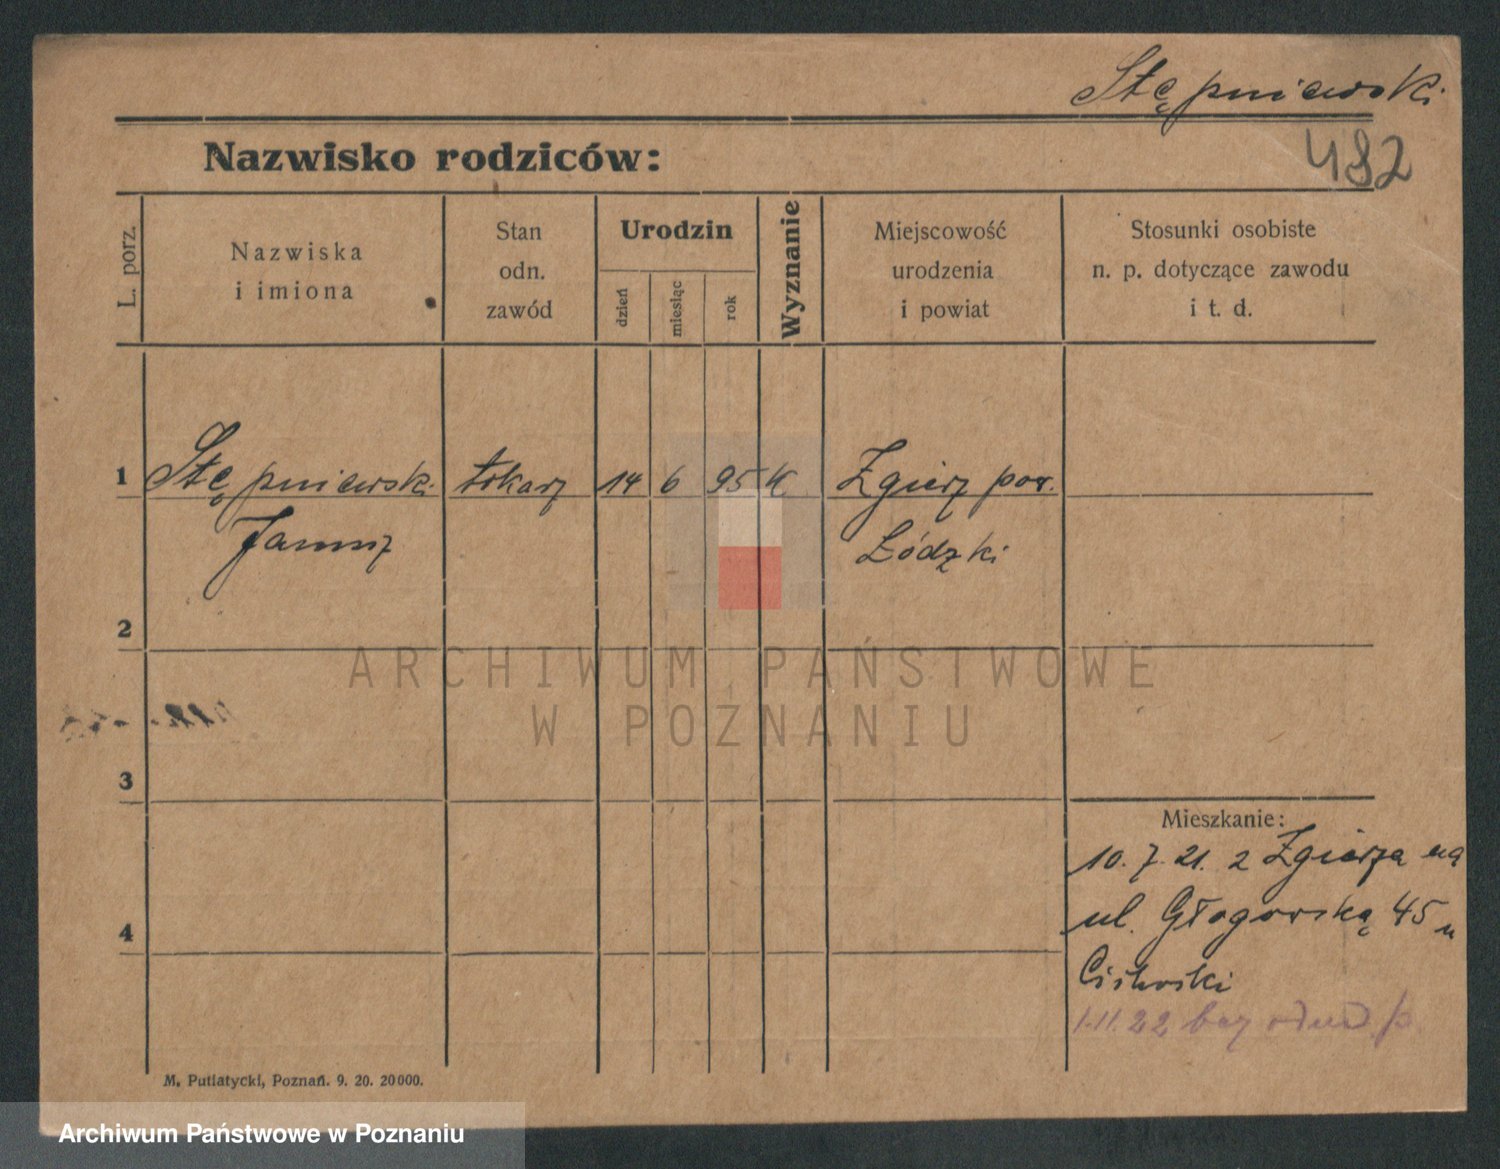 Stępniewski
482
Nazwisko rodziców:
L. porz.
Nazwiska
i imiona
Stan
odn.
zawód
Urodzin
dzień
miesiąc
rok
Wyznanie
Miejscowość
urodzenia
i powiat
Stosunki osobiste
n. p. dotyczące zawodu
i t. d.
1 Stępniewski tokarz 14 6 95 K Zgierz pow.
Janusz Łódzki
2
ARCHIWUM PAŃSTWOWE
W POZNANIU
3
Mieszkanie:
10. 7. 21. z Zgierza na
ul. Głogowską 45 u
4
1.11.22 bez
M. Putiatycki, Poznań. 9. 20. 20000.
Archiwum Państwowe w Poznaniu